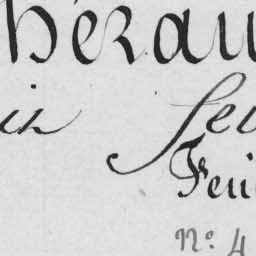 hérau
in se
Feui
N° 4